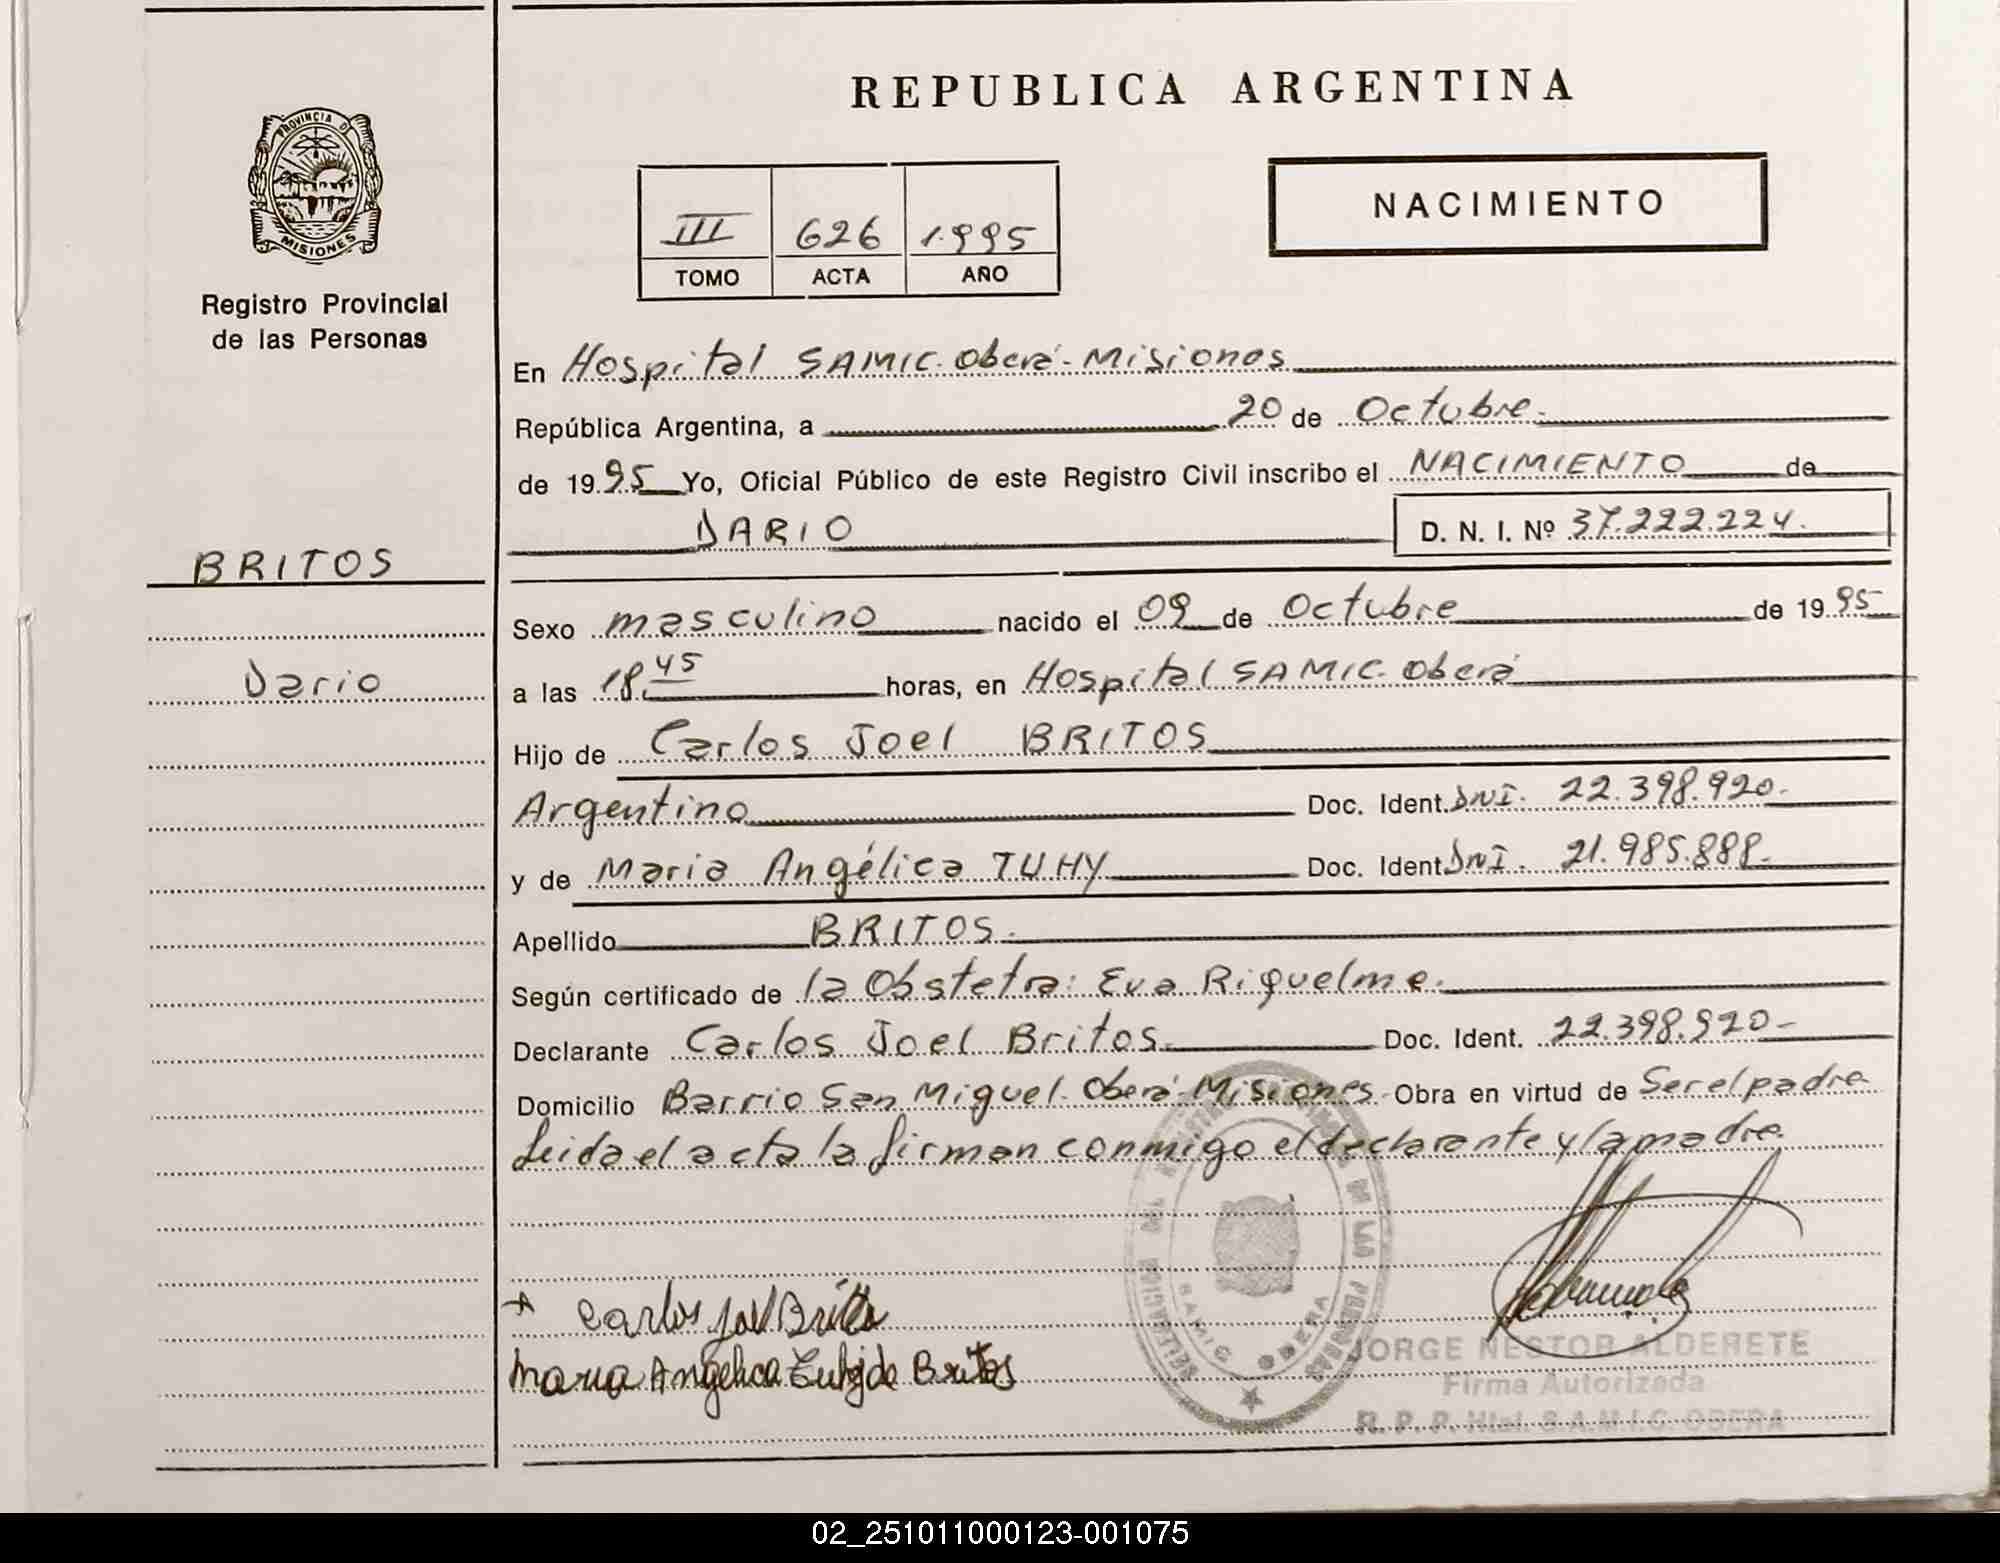 REPUBLICA ARGENTINA
PROVINCIA DE
MISIONES
Registro Provincial
de las Personas
III 626 1.995
TOMO ACTA AÑO
NACIMIENTO
En Hospital SAMIC. Oberá - Misiones
República Argentina, a 20 de Octubre.
de 1995 Yo, Oficial Público de este Registro Civil inscribo el NACIMIENTO de
DARIO D. N. I. Nº 37.222.224.
BRITOS
Sexo masculino nacido el 09 de Octubre de 1995
Dario
a las 18.45 horas, en Hospital SAMIC. Oberá
Hijo de Carlos Joel BRITOS
Argentino Doc. Ident. DNI. 22.398.920.
y de Maria Angélica TUHY Doc. Ident. DNI. 21.985.888.
Apellido BRITOS.
Según certificado de la Obstetra: Eva Riquelme.
Declarante Carlos Joel Britos. Doc. Ident. 22.398.920-
Domicilio Barrio San Miguel - Oberá - Misiones - Obra en virtud de Ser el padre
Leida el acta la firman conmigo el declarante y la madre.
Carlos Joel Britos
Maria Angelica Tuhy de Britos
DE LAS PERSONAS
SAMIC OBERA
JORGE NESTOR ALDERETE
Firma Autorizada
R. P. P. Htal. S.A.M.I.C. OBERA
02_251011000123-001075